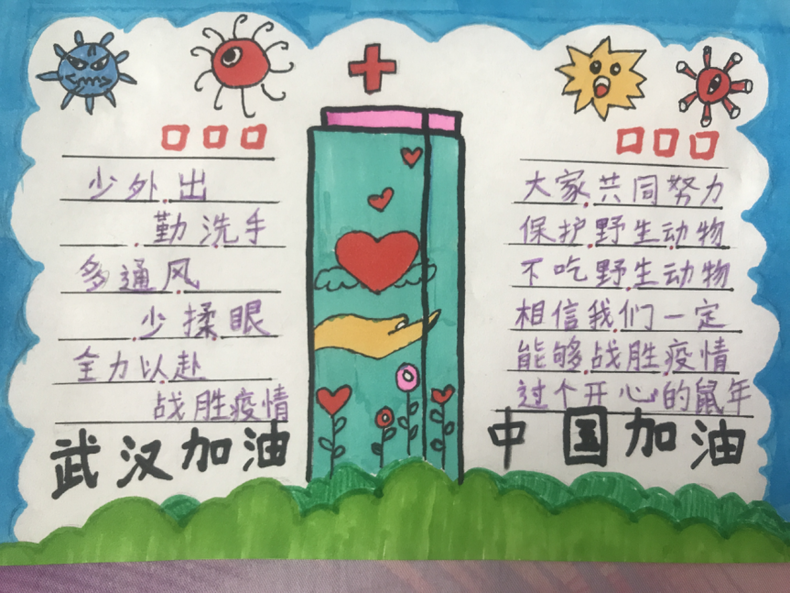 少外出
勤洗手
多通风
少揉眼
全力以赴
战胜疫情
武汉加油
大家共同努力
保护野生动物
不吃野生动物
相信我们一定
能够战胜疫情
过个开心的鼠年
中国加油